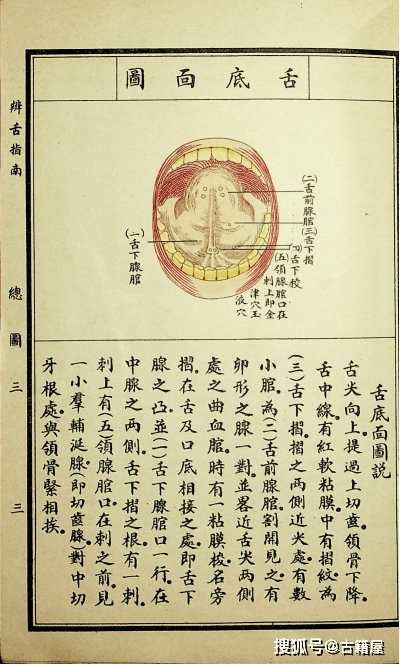 辨舌指南
總圖
三
三
舌底面圖
(二)舌前腺腟
(三)舌下摺
(四)舌下校
(五)頷腺腟口在
刺上即金
津穴玉
液穴
(一)舌下腺腟
舌底面圖說
舌尖向上提過上切齒頷骨下降。
舌中線有紅軟粘膜中有摺紋為
(三)舌下摺摺之兩側近尖處有數
小腟為(二)舌前腺腟割開見之有
卵形之腺一對並畧近舌尖兩側
處之曲血腟時有一粘膜梭名旁
摺在舌及口底相接之處即舌下
腺之凸並(一)舌下腺腟口一行在
中腺之兩側舌下摺之根有一刺
刺上有(五)頷腺腟口在刺之前見
一小羣輔涎腺即切齒腺對中切
牙根處與頷骨緊相挨。
搜狐号@古籍屋